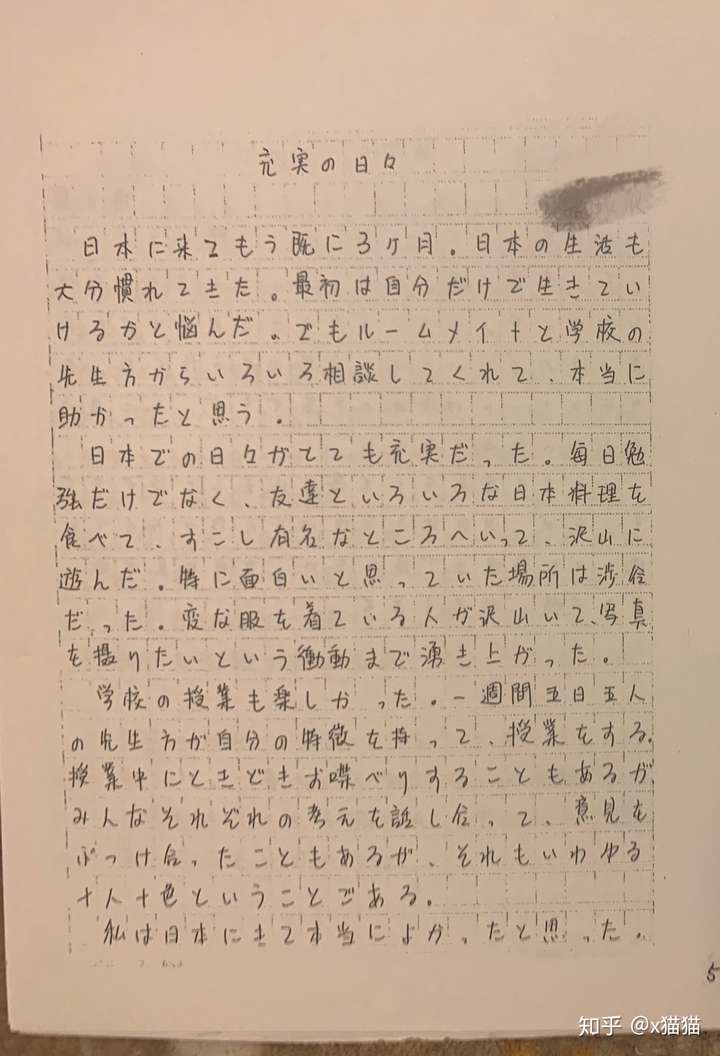 充実の日々
日本に来てもう既に3ケ月。日本の生活も
大分慣れてきた。最初は自分だけで生きてい
けるかと悩んだ。でもルームメイトと学校の
先生方からいろいろ相談してくれて、本当に
助かったと思う。
日本での日々がとても充実だった。毎日勉
強だけでなく、友達といろいろな日本料理を
食べて、すこし有名なところへいって、沢山に
遊んだ。特に面白いと思っていた場所は渋谷
だった。変な服を着ている人が沢山いて、写真
を撮りたいという衝動まで湧き上がった。
学校の授業も楽しかった。一週間五日五人
の先生方が自分の特徴を持って、授業をする。
授業中にときどきお喋べりすることもあるが
みんなそれぞれの考えを話し合って、意見を
ぶつけ合ったこともあるが、それもいわゆる
十人十色ということである。
私は日本にきて本当によかったと思った。
5
知乎 @x猫猫